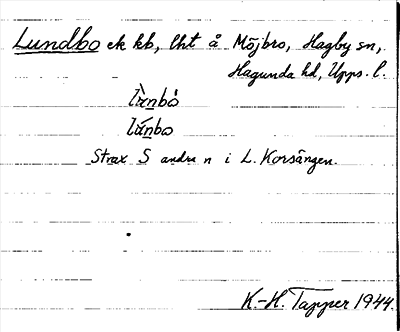 Lundbo ek kb, lht å Möjbro, Hagby sn,
Hagunda hd, Upps. l.
lùnbò
lúnbo
Strax S andra n i L. Korsängen.
K.-H. Tapper 1944.